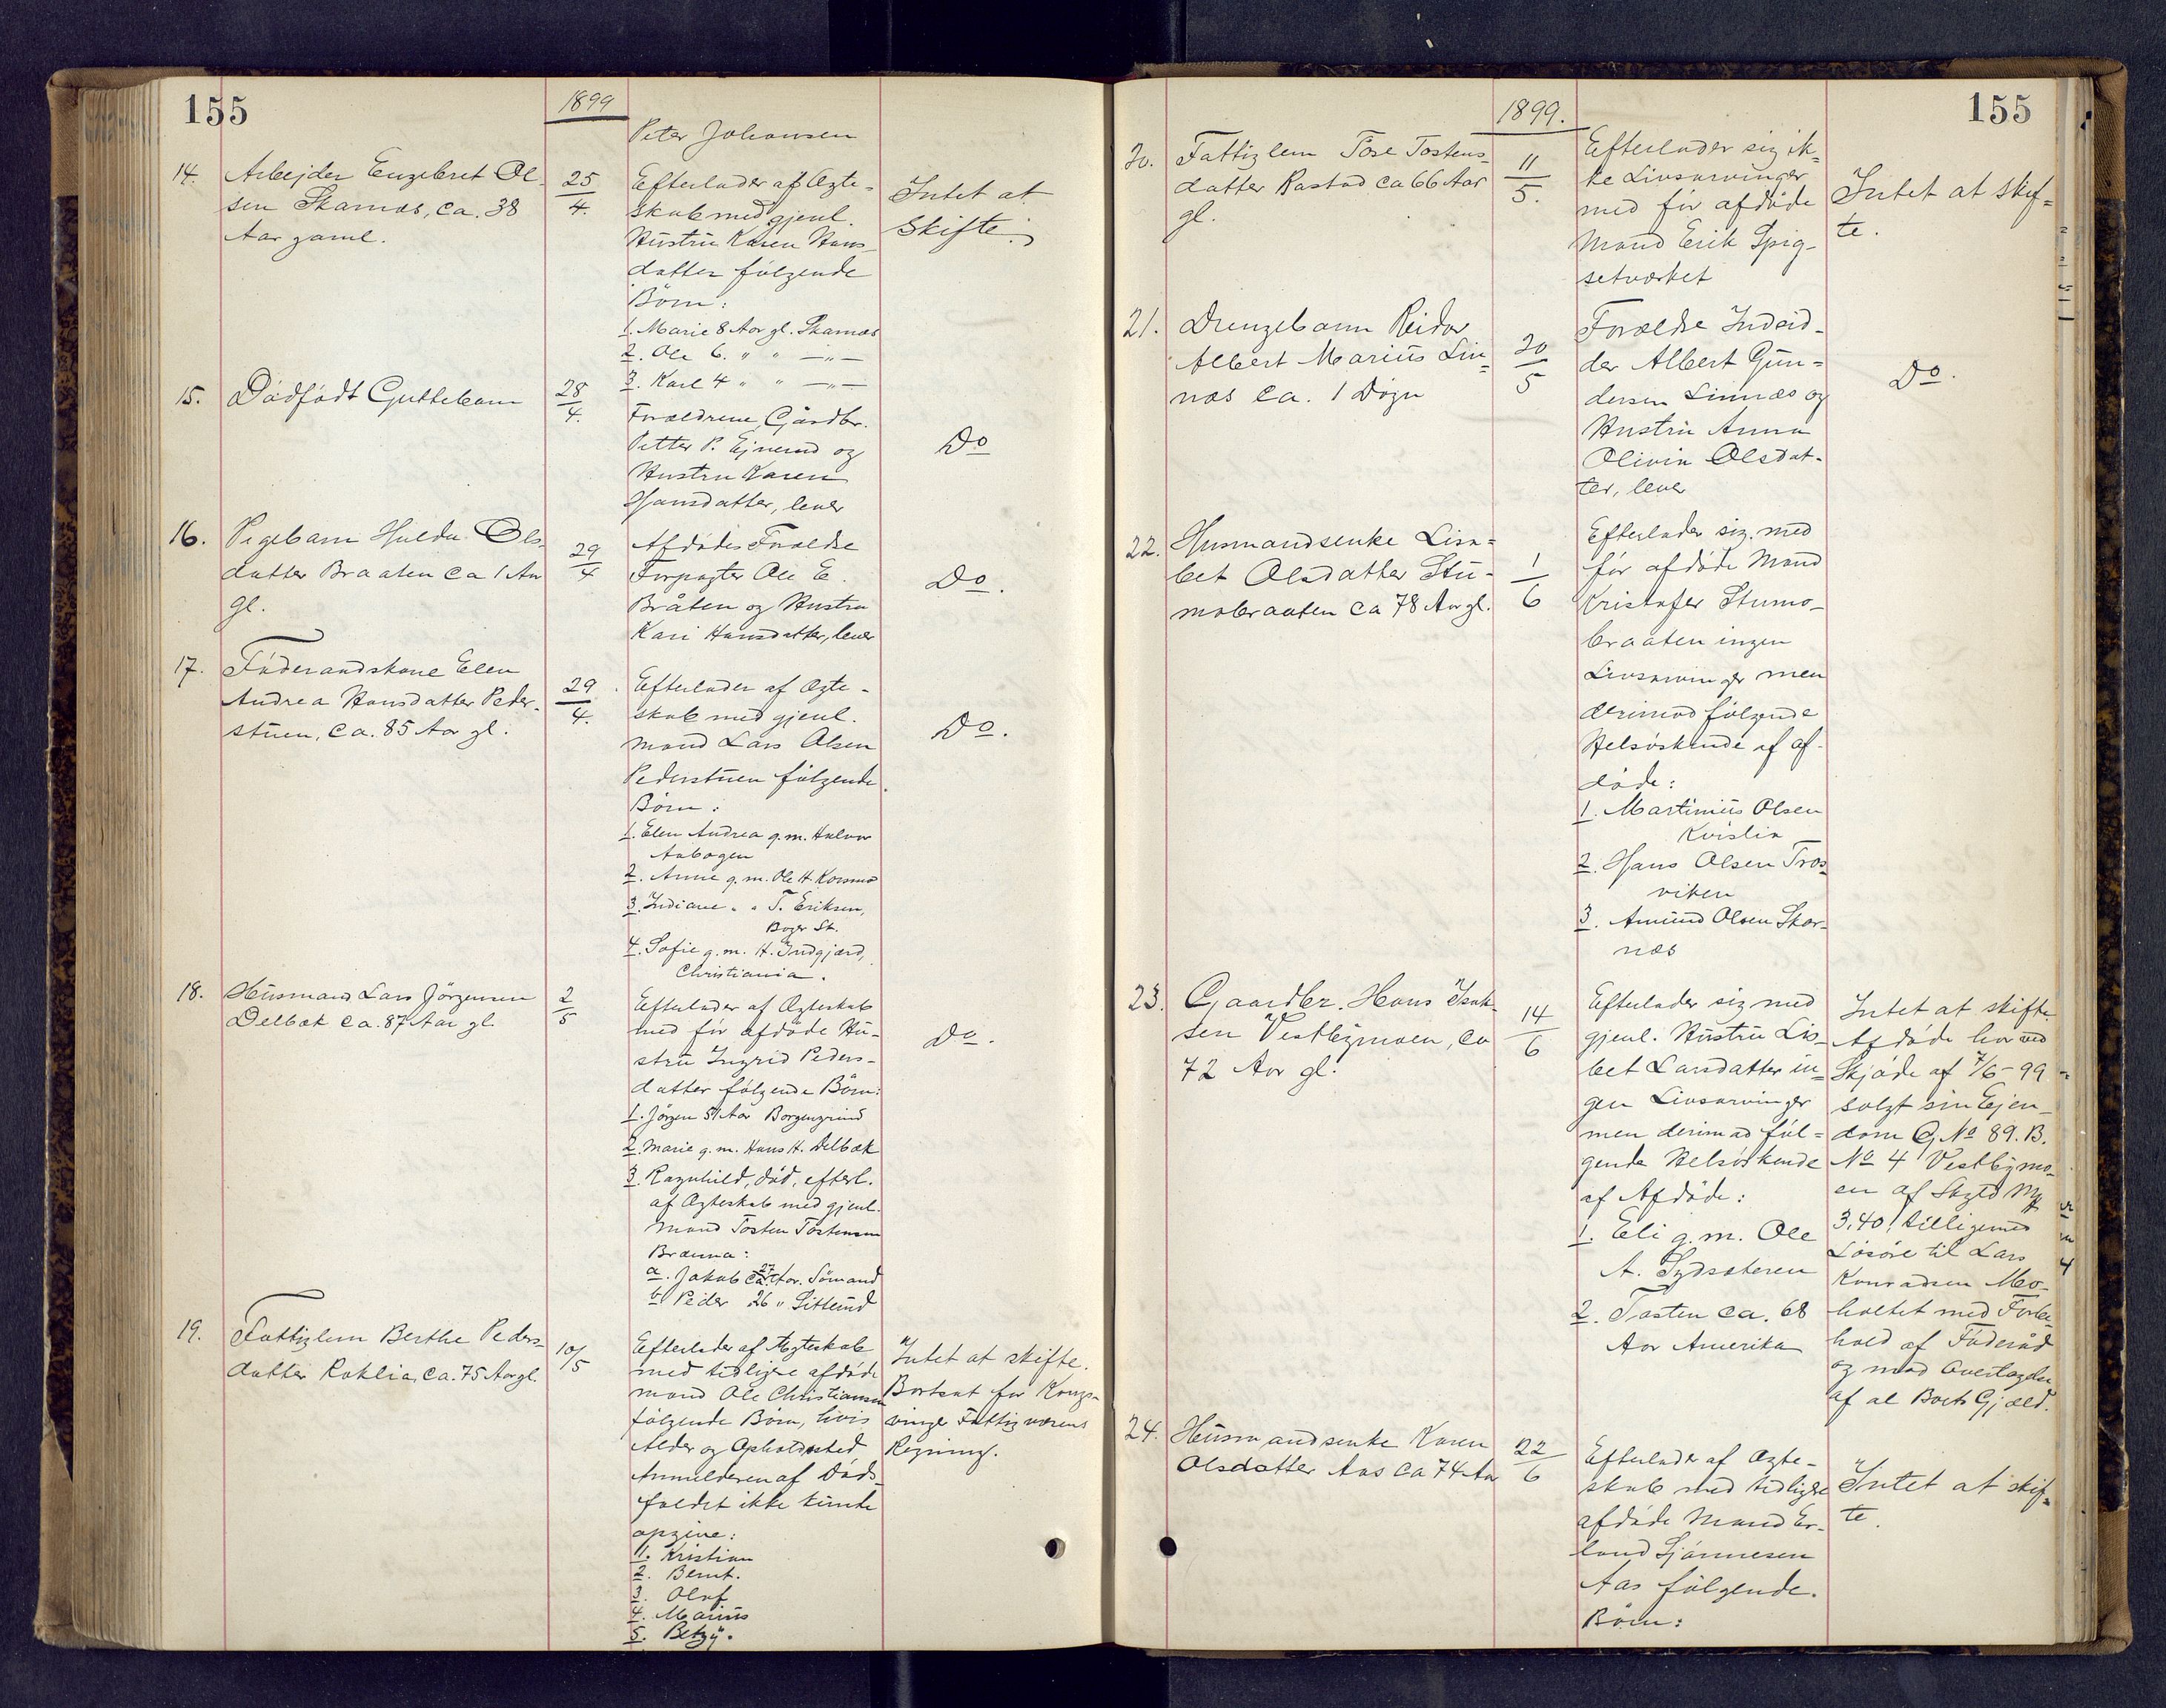 155
1899
Peter Johansen
14.
Arbejder Engebret Ol-
sen Skarnæs, ca. 38
Aar gaml.
25/4.
Efterlader af Ægte-
skab med gjenl.
Hustru Karen Hans-
datter følgende
Børn:
1. Marie 8 Aar gl. Skarnæs
2. Ole 6. " " —"—
3. Karl 4 " " —"—
Intet at
skifte.
15.
Dødfødt Guttebarn
28/4.
Forældrene, Gårdbr.
Petter P. Ejnerud og
Hustru Karen
Hansdatter, lever
Do
16.
Pigebarn Hulda Ols-
datter Braaten ca 1 Aar
gl.
29/4
Afdødes Forældre
Forpagter Ole E.
Bråten og Hustru
Kari Hansdatter, lever
Do.
17.
Føderaadskone Elen
Andrea Hansdatter Peder-
stuen, ca. 85 Aar gl.
29/4.
Efterlader af Ægte-
skab med gjenl.
Mand Lars Olsen
Pederstuen følgende
Børn:
1. Elen Andrea g. m. Halvor
Aabogen
2. Anne g. m. Ole H. Korsmo
3. Indiane " " T. Eriksen,
Boger St.
4. Sofie g. m. H. Indgjærd,
Christiania.
Do.
18.
Husmand Lars Jörgensen
Delbæk ca. 87 Aar gl.
2/5
Efterlader af Ægteskab
med før afdøde Hu-
stru Ingrid Peders-
datter følgende Børn:
1. Jørgen 51 Aar Borgengrind
2. Marie g. m. Hans H. Delbæk
3. Ragnhild, død, efterl.
af Ægteskab med gjenl.
Mand Tosten Tostensen
Brænna:
a. Jakob ca. 27 Aar. Sömand
b. Peder 26 " Sitterud
Do.
19.
Fattiglem Berthe Peders-
datter Roklia, ca. 75 Aar gl.
10/5
Efterlader af Ægteskab
med tidligere afdøde
Mand Ole Christiansen
følgende Börn, hvis
Alder og Opholdssted
Anmelderen af Døds-
faldet ikke kunde
opgive:
1. Kristian
2. Bernt.
3. Olaf
4. Marius
5. Betzy.
Intet at skifte.
Bortsat for Kongs-
vinger Fattigvæsens
Regning.
155
1899.
20.
Fattiglem Tose Tostens-
datter Rastad ca 66 Aar
gl.
11/5.
Efterlader sig ik-
ke Livsarvinger
med før afdøde
Mand Erik Spig-
setværket
Intet at skif-
te.
21.
Drengebarn Reidar
Albert Marius Lin-
næs ca. 1 Døgn
20/5
Forældre Indsid-
der Albert Gun-
dersen Linnæs og
Hustru Anna
Olivia Olsdat-
ter, lever
Do.
22.
Husmandsenke Lisa-
bet Olsdatter Stu-
mobraaten ca 78 Aar gl.
1/6
Efterlader sig med
før afdøde Mand
Kristofer Stumo-
braaten ingen
Livsarvinger men
derimod følgende
Helsöskende af af-
døde:
1. Martinius Olsen
Kvislia
2. Hans Olsen Tros-
viken
3. Amund Olsen Skar-
næs
23.
Gaardbr. Hans Isak-
sen Vestbymoen, ca
72 Aar gl.
14/6
Efterlader sig med
gjenl. Hustru Lis-
bet Larsdatter in-
gen Livsarvinger
men derimod føl-
gende Helsøskende
af Afdøde:
1. Eli g. m. Ole
A. Sydsæteren
2. Tosten ca. 68
Aar Amerika
Intet at skifte
Afdøde har ved
Skjøde af 7/6-99
solgt sin Ejen-
dom G. No 89. B.
No 4 Vestbymo-
en af Skyld Mk
3,40, tilligemed
Løsøre til Lars
Konradsen Mo-
holtet med Forbe-
hold af Føderåd
og mod Overtagelse
af al Boets Gjæld.
24.
Husmandsenke Karen
Olsdatter Aas ca 74 Aar
22/6
Efterlader af Ægte-
skab med tidligere
afdøde Mand Er-
land Gjønnesen
Aas følgende.
Børn:
Intet at skif-
te.